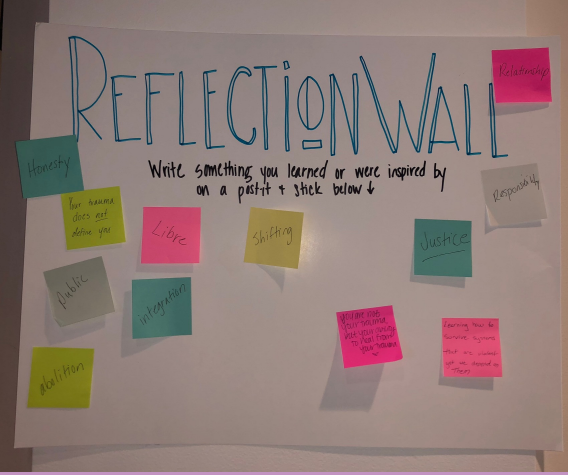 REFLECTION WALL
Write something you learned or were inspired by
on a postit + stick below ↓
Relationship
Honesty
Responsibility
Your trauma
does not
define you
Libre
Shifting
Justice
Public
integration
you are not
your trauma
but your
to heal from
your trauma
Learning how to
survive systems
that are violent
yet we depend on
them
abolition